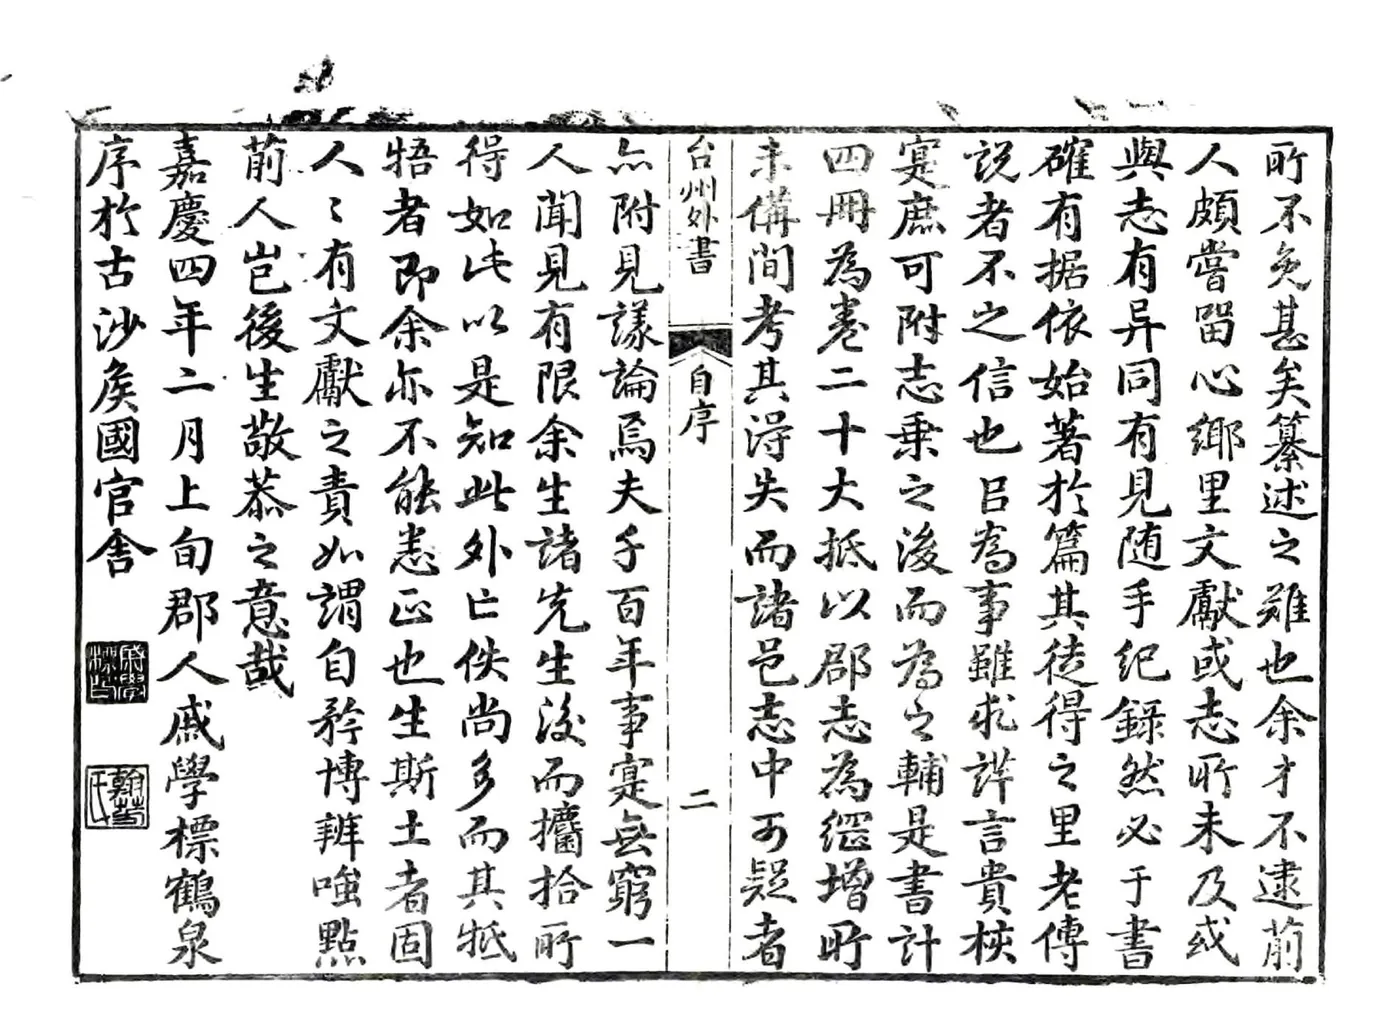 所不免甚矣纂述之難也余才不逮前
人頗嘗畱心鄉里文獻或志所未及或
與志有异同有見随手紀録然必于書
確有据依始著於篇其徒得之里老傳
說者不之信也㠯為事雖求詳言貴核
寔庶可附志乗之後而為之輔是書計
四冊為卷二十大抵以郡志為綱增所
未備間考其得失而諸邑志中可疑者
台州外書
自序
二
亦附見議論焉夫千百年事寔無窮一
人聞見有限余生諸先生後而攟拾所
得如此以是知此外亡佚尚多而其牴
牾者即余亦不能悉正也生斯土者固
人〻有文獻之責如謂自矜博辨嗤點
前人豈後生敬恭之意哉
嘉慶四年二月上旬郡人戚學標鶴泉
序於古沙矦國官舍
戚學標印